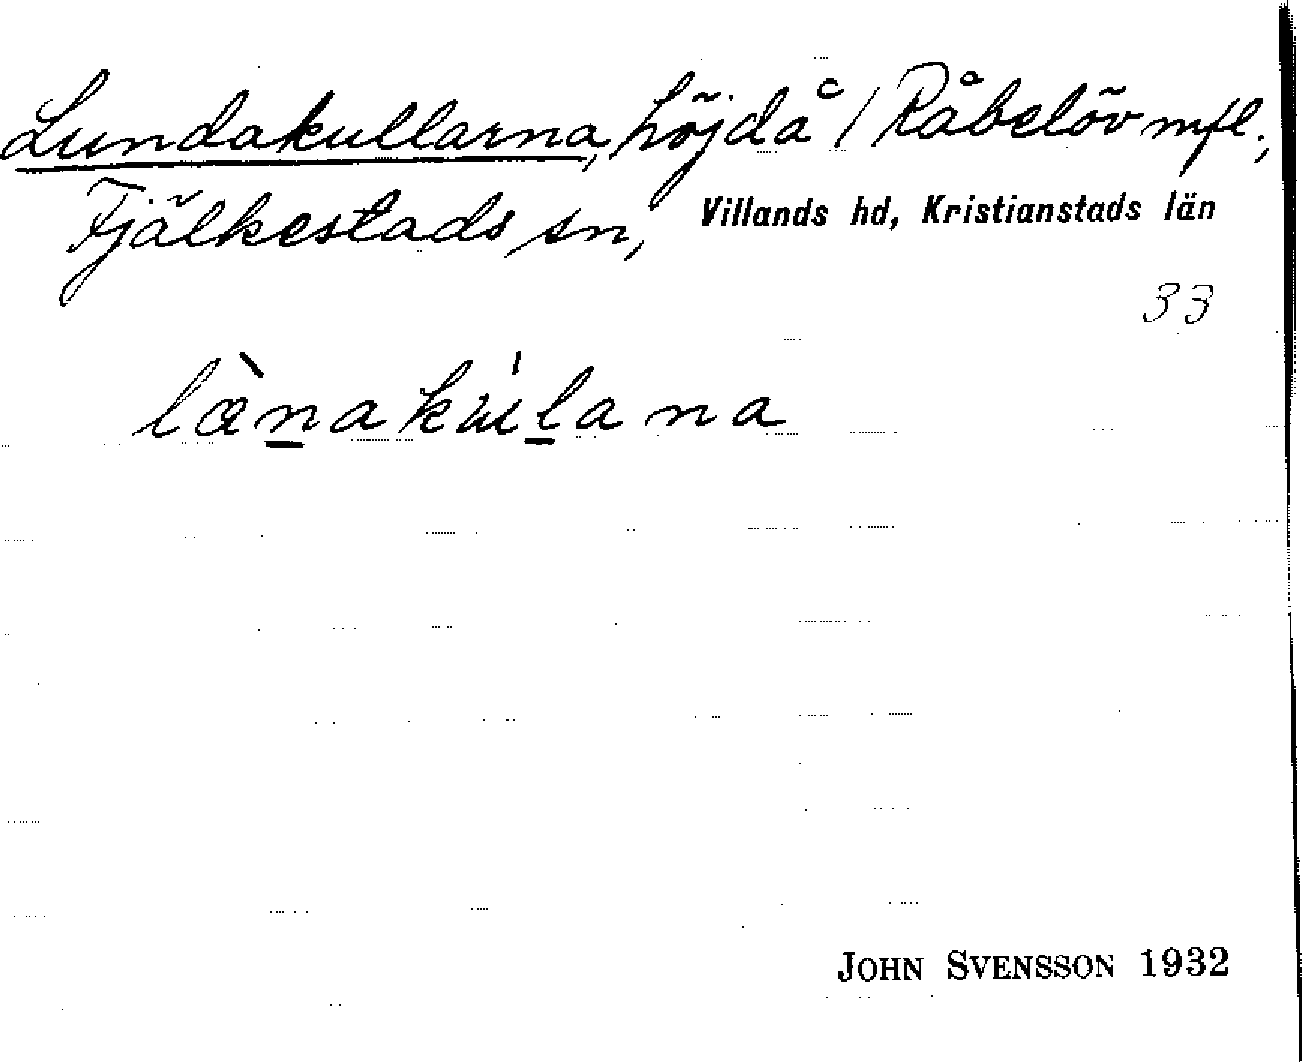 Lundakullarna, höjd å / Råbelöv mfl.,
Fjälkestads sn, Villands hd, Kristianstads län
33
lænakulana
JOHN SVENSSON 1932